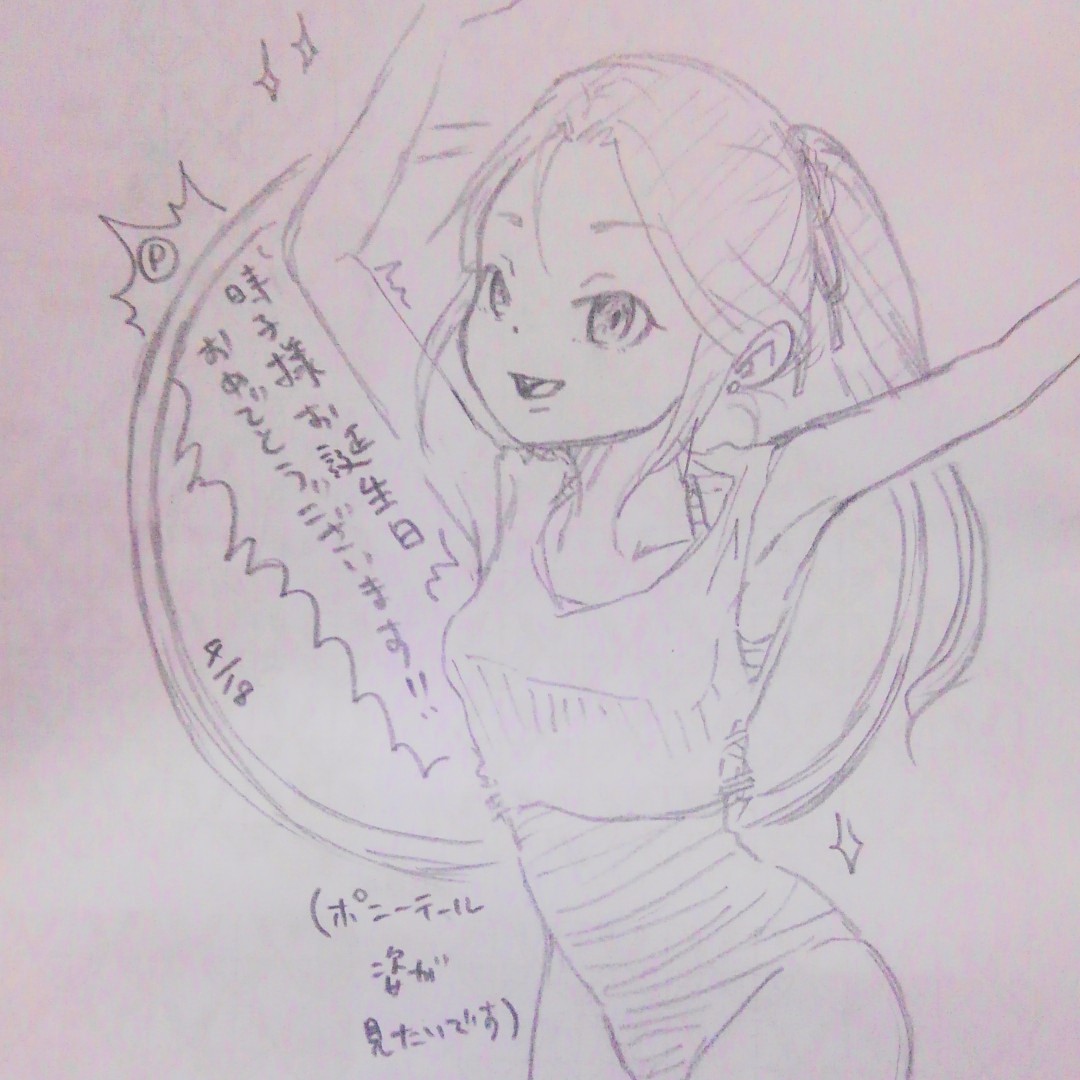 Ⓟ
時子様お誕生日
おめでとうございます!!
4/18
(ポニーテール
姿が
見たいです)